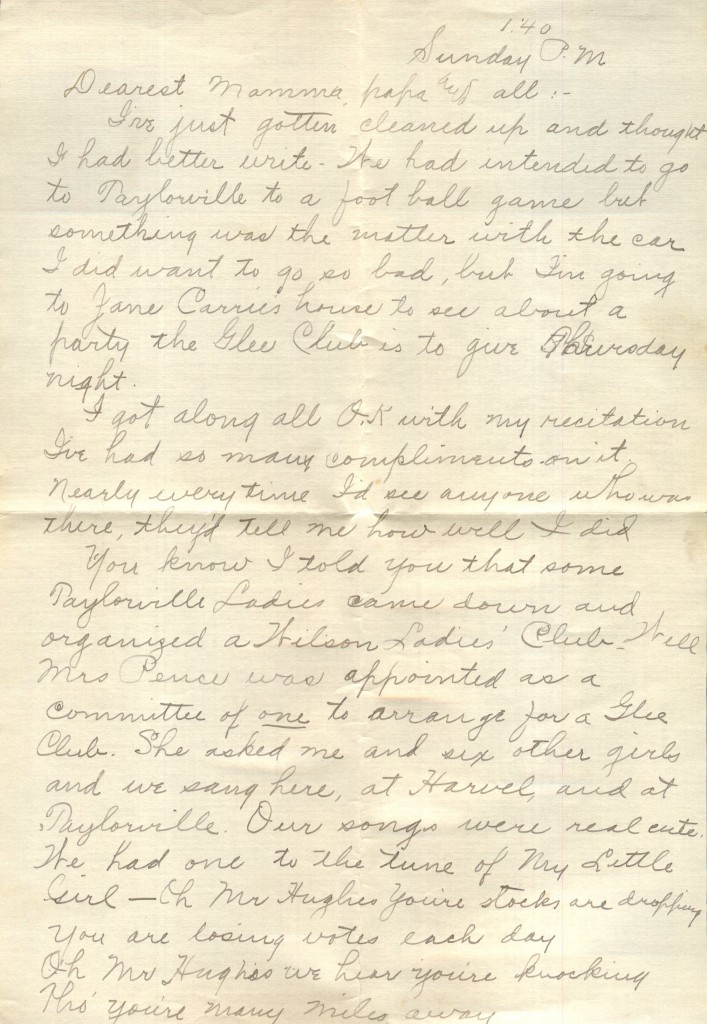 1:40
Sunday P.M
Dearest Mamma, papa and all :-
I've just gotten cleaned up and thought
I had better write - We had intended to go
to Taylorville to a foot ball game but
something was the matter with the car
I did want to go so bad, but I'm going
to Jane Carrie's house to see about a
party the Glee Club is to give Thursday
night.
I got along all O.K with my recitation
I've had so many compliments on it.
Nearly every time I'd see anyone who was
there, they'd tell me how well I did
You know I told you that some
Taylorville Ladies came down and
organized a Wilson Ladies' Club - Well
Mrs Pence was appointed as a
committee of one to arrange for a Glee
Club. She asked me and six other girls
and we sang here, at Harvel, and at
Taylorville. Our songs were real cute.
We had one to the tune of My Little
Girl - Oh Mr Hughes You're stocks are dropping
You are losing votes each day
Oh Mr Hughes we hear you're knocking
Tho' you're many miles away